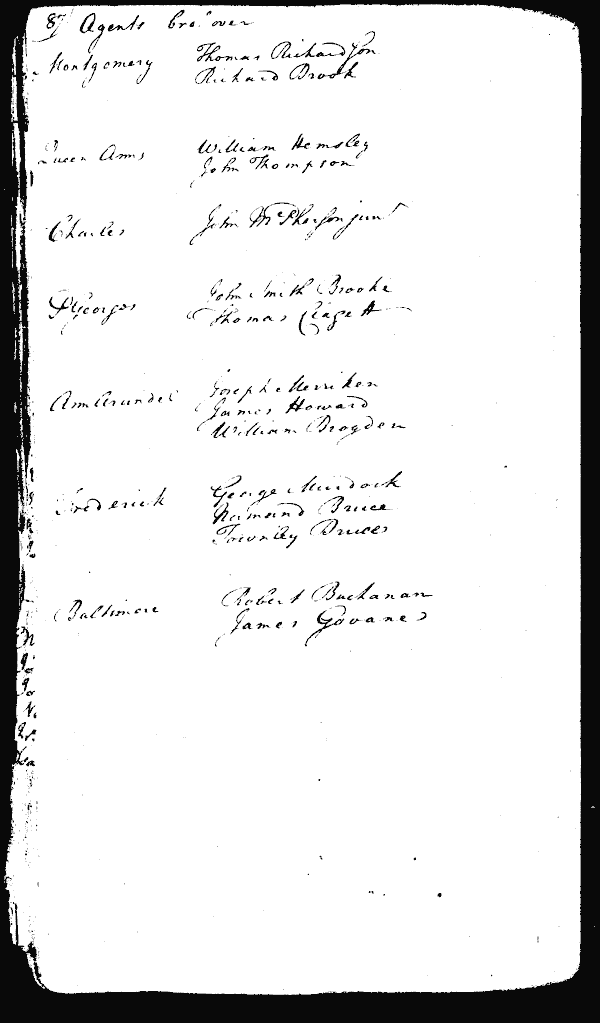 87 Agents bro.t over
Montgomery Thomas Richardson
Richard Brook
Queen Anns William Hemsley
John Thompson
Charles John McPherson junr
P Georges John Smith Brooke
Thomas Clagett
Ann Arundel Joseph Merriken
James Howard
William Brogden
Frederick George Murdock
Normand Bruce
Townley Bruce
Baltimore Robert Buchanan
James Govane